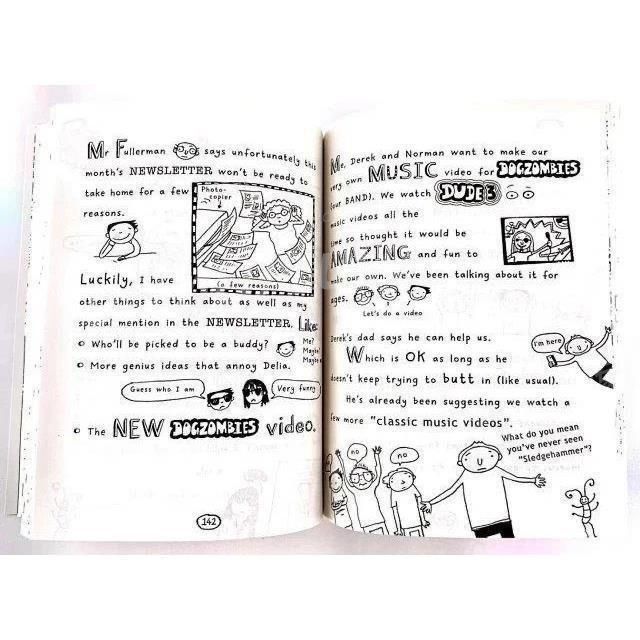 Mr Fullerman says unfortunately this
month's NEWSLETTER won't be ready to
take home for a few
reasons.
Photo-
copier
(a few reasons)
Luckily, I have
other things to think about as well as my
special mention in the NEWSLETTER. Like:
Who'll be picked to be a buddy?
Me?
Maybe?
More genius ideas that annoy Delia.
Guess who I am
Very funny
The NEW DOGZOMBIES video.
142
Me, Derek and Norman want to make our
very own MUSIC video for DOGZOMBIES
(our BAND). We watch DUDE3
music videos all the
time so thought it would be
AMAZING and fun to
make our own. We've been talking about it for
ages.
Let's do a video
Derek's dad says he can help us.
I'm here
Which is OK as long as he
doesn't keep trying to butt in (like usual).
He's already been suggesting we watch a
few more "classic music videos".
What do you mean
you've never seen
"Sledgehammer"?
no
no